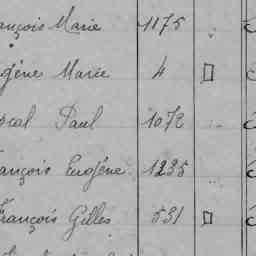 ançois Marie 1175
gène Marie 4
scal Paul 1072
ançois Eugène 1235
François Gilles 531